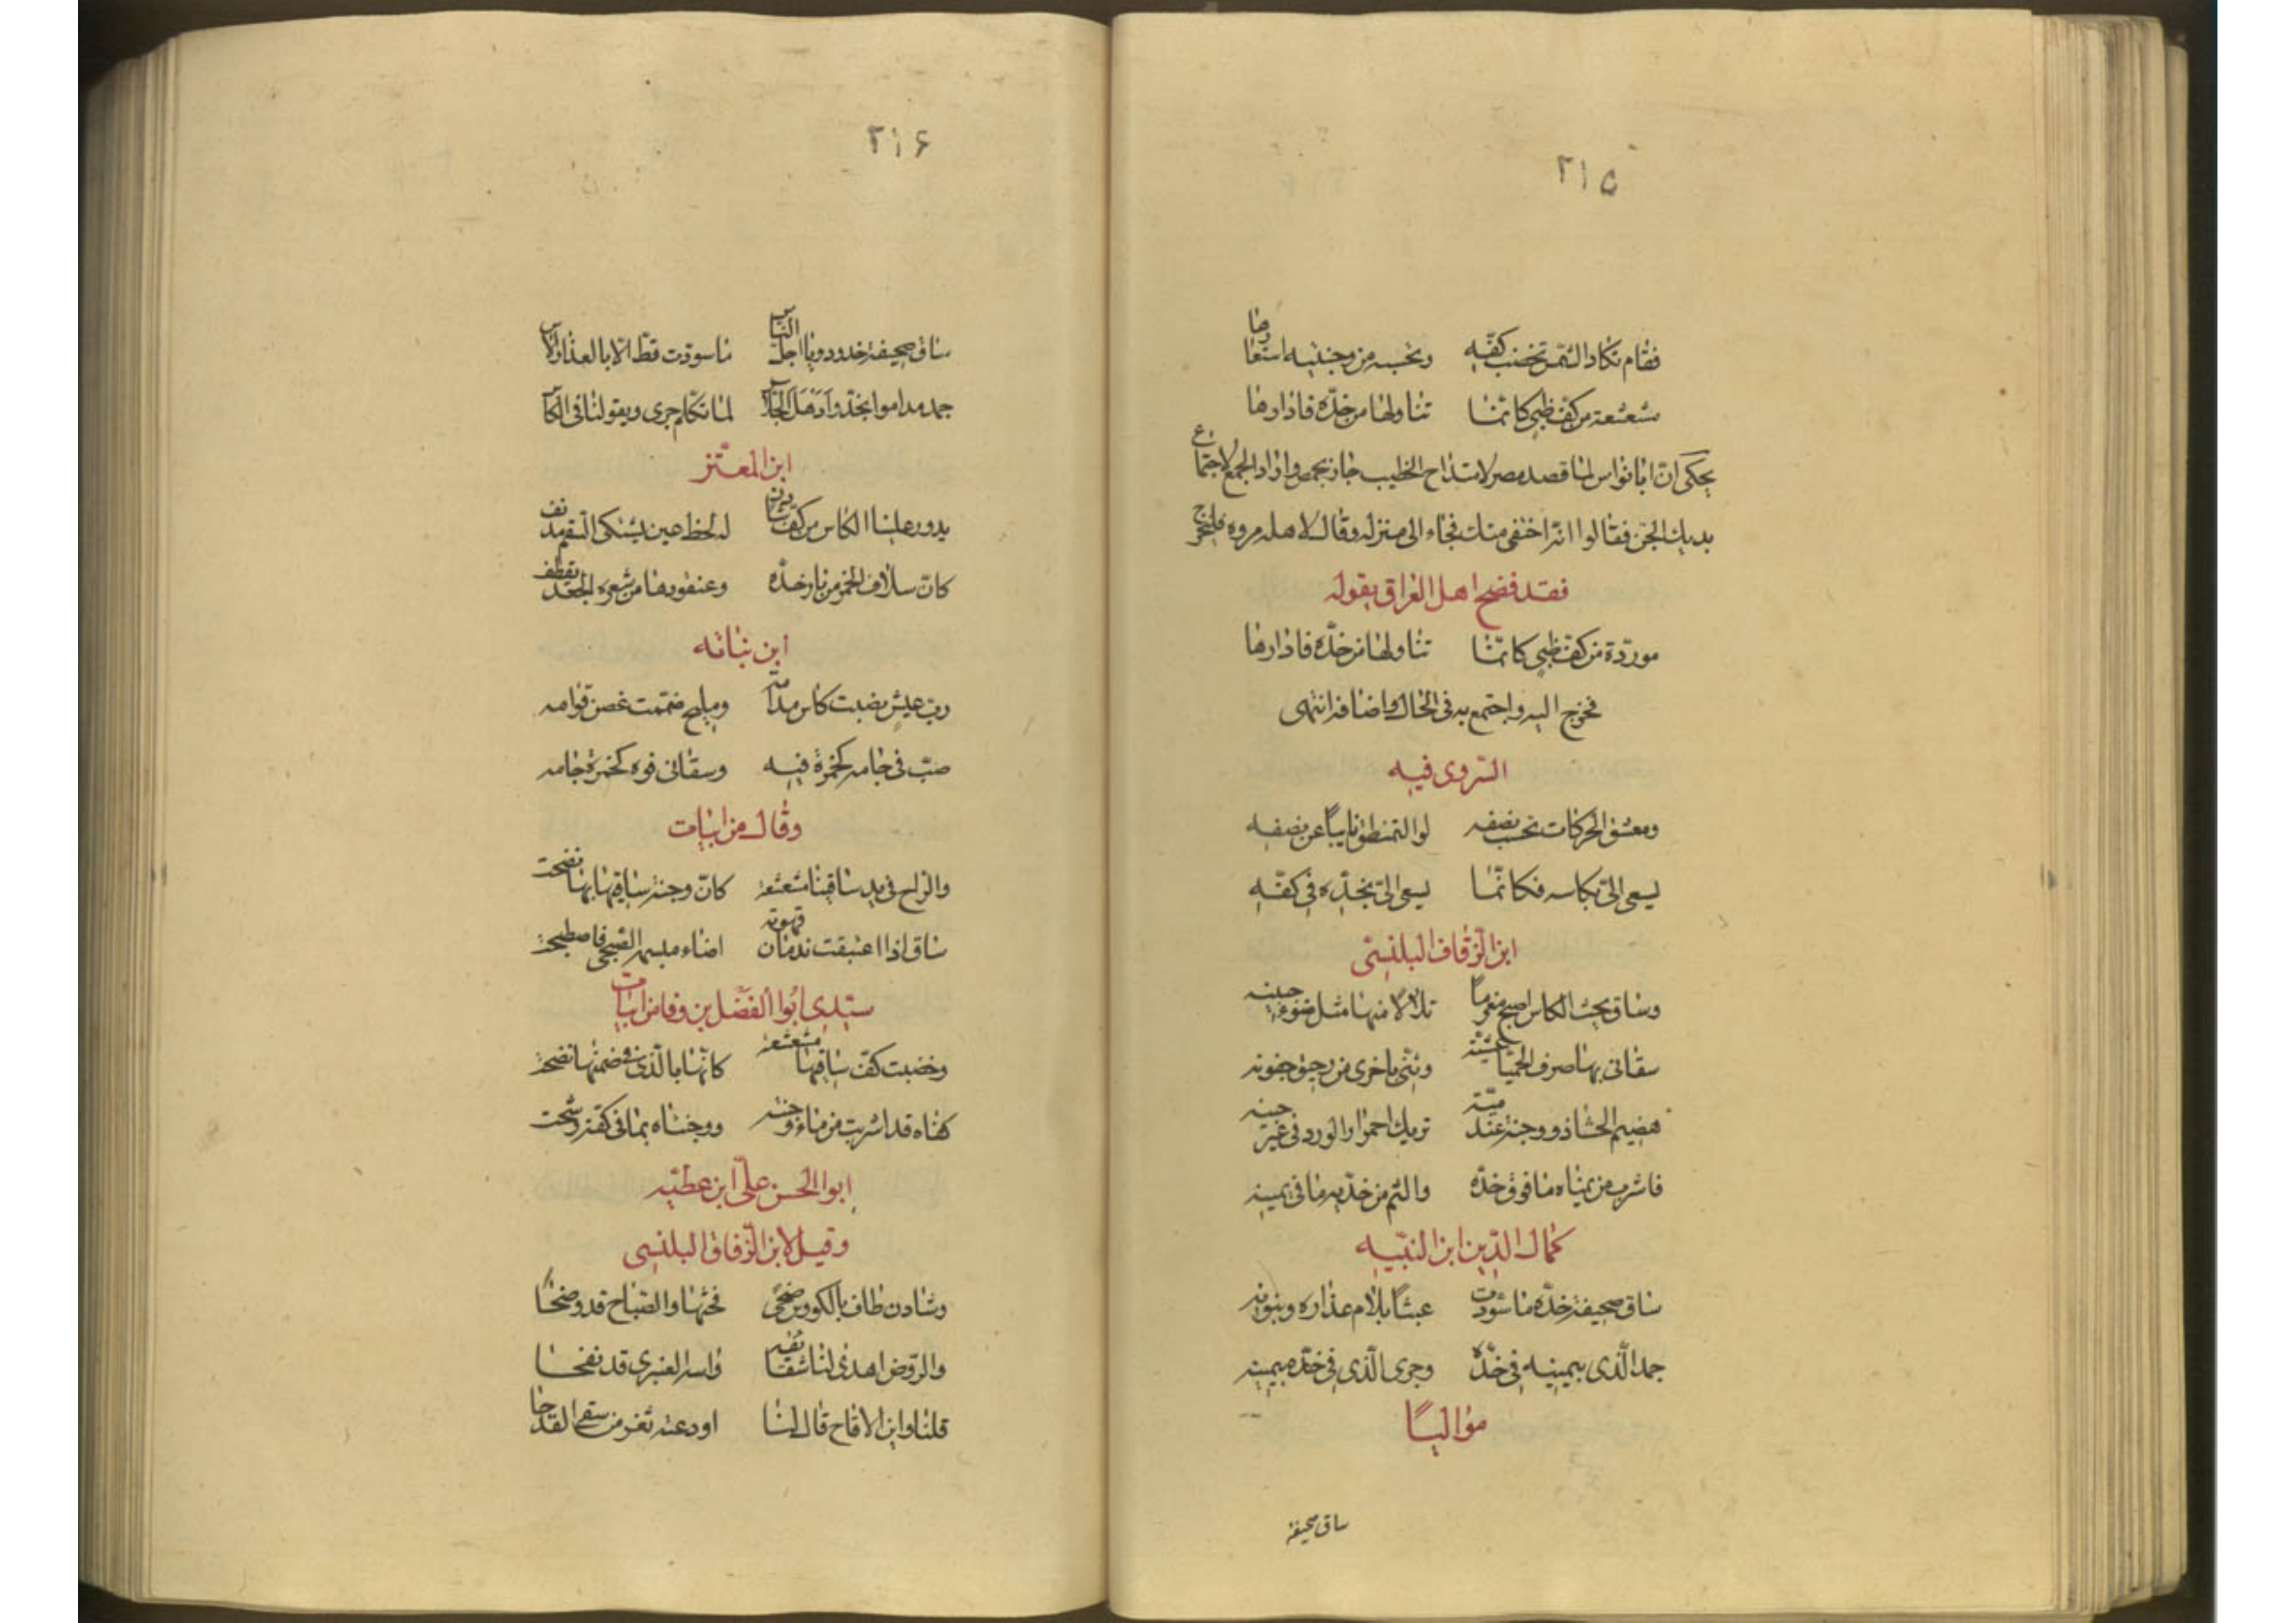 ٢١٥
فقام تكاد الشمس تخضب كفّه وتحسبه من وجنتيه استعارها
مشعشعة من كف ظبي كأنّما تناولها من خدّه فادارها
يحكى انّ ابا نواس لمّا قصد مصر لامتداح الخطيب جاز بحمص واراد الجمع لاجتماع
بديك الجن فقالوا انّه اختفى منك فجاء الى منزله وقال لاهله مروه فليخرج
فقد فضح اهل العراق بقوله
مورّدة من كف ظبي كانّما تناولها من خدّه فادارها
فخرج اليه واجتمع به فى الحال واضافه انتهى
السروى فيه
ومعشق الحركات تحسب نصفه لولا التمنطق نايباً عن نصفه
يسعى الىّ بكاسه فكانّما يسعى الىّ بخدّه فى كفّه
ابن الزقاف البلنسى
وساق يحث الكاس اصبح مغرماً تلألأ منها مثل ضوء جبينه
سقانى بها صرف الحميّا عشيّة وثنّى باخرى من رحيق جفونه
هضيم الحشا ذو وجنة عندميّة تريك احمرار الورد فى غير حينه
فاشرب من يمناه ما فوق خدّه والثم من خدّيه ما فى يمينه
كمال الدّين ابن النبيه
ساق صحيفة خدّه ما سوّدت عبثاً بلام عذاره وبنونه
جمد الّذى بيمينه فى خدّه وجرى الّذى فى خدّه بيمينه
مواليًا
ساق صحيفة
٢١٦
ساق صحيفة خدوده يا اجلّ النّاس ما سوّدت قطّ الا بالعذار والاس
جمد مداموا بخدّو واذهل الجلاس لما تكلم جرى ويقول لنا فى الكاس
ابن المعتز
يدور علينا الكاس من كف شادن له لحظ عين يشتكى السقم مدنف
كانّ سلاف الخمر من نار خدّه وعنقودها من شعره الجعد يقطف
ابن نباته
ربّ عيش نصبت كاس مدامه ومليح ضممت غصن قوامه
صبّ فى جامه كخمرة فيه وسقانى فوه كخمرة جامه
وقال من ابيات
والراح فى يد ساقينا مشعشعة كانّ وجنة ساقيها بها نضحت
ساق اذا اغتبقت ندمان قهوته اضاء مبسمه الصبحى فاصطبحت
سيّدى ابوا الفضل بن وفا من ابيات
وخضبت كفّ ساقيها مشعشعة كانّها بالّذى فى ضمنها نضحت
كفاه قد اشربت من ماء وجنته ووجنتاه بما فى كفّه رشحت
ابوا الحسن علىّ ابن عطيّه
وقيل لابن الزقاق البلنسى
وشادن طاف بالكووس ضحى فحثها والصباح قد وضحا
والروض اهدى لنا شقايقه واسه العنبرى قد نفحا
قلنا واين الاقاح قال لنا اودعته ثغر من سقى القدحا